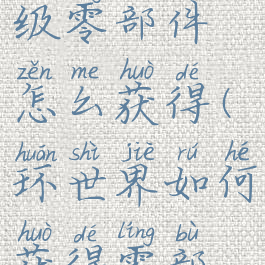 级零部件
zěn me huò dé
怎么获得(
huán shì jiè rú hé
环世界如何
huò dé líng bù
获得零部